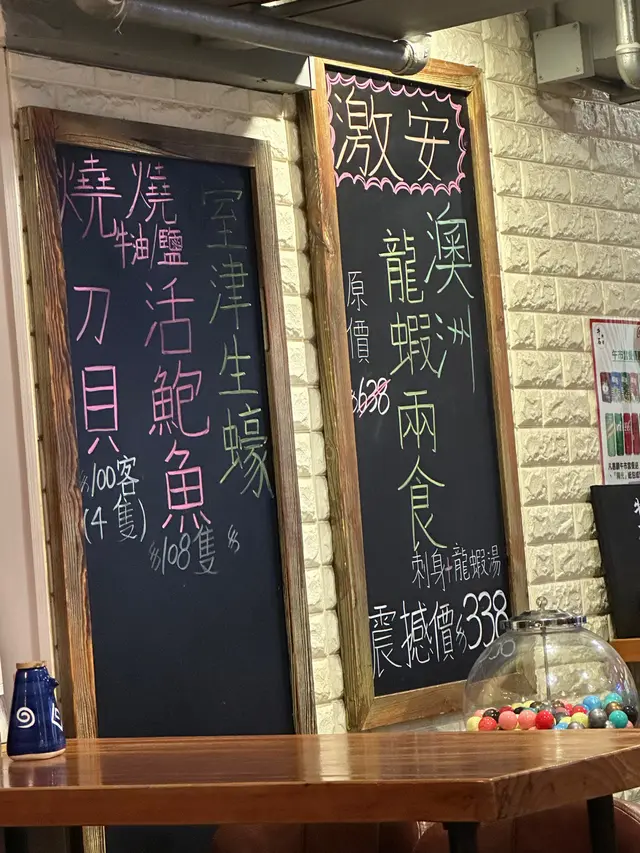 激安
澳洲
龍蝦兩食
刺身+龍蝦湯
原價
$638
震撼價$338
室津生蠔
$
燒
牛油/鹽
活鮑魚
$108隻
燒刀貝
$100客
(4隻)